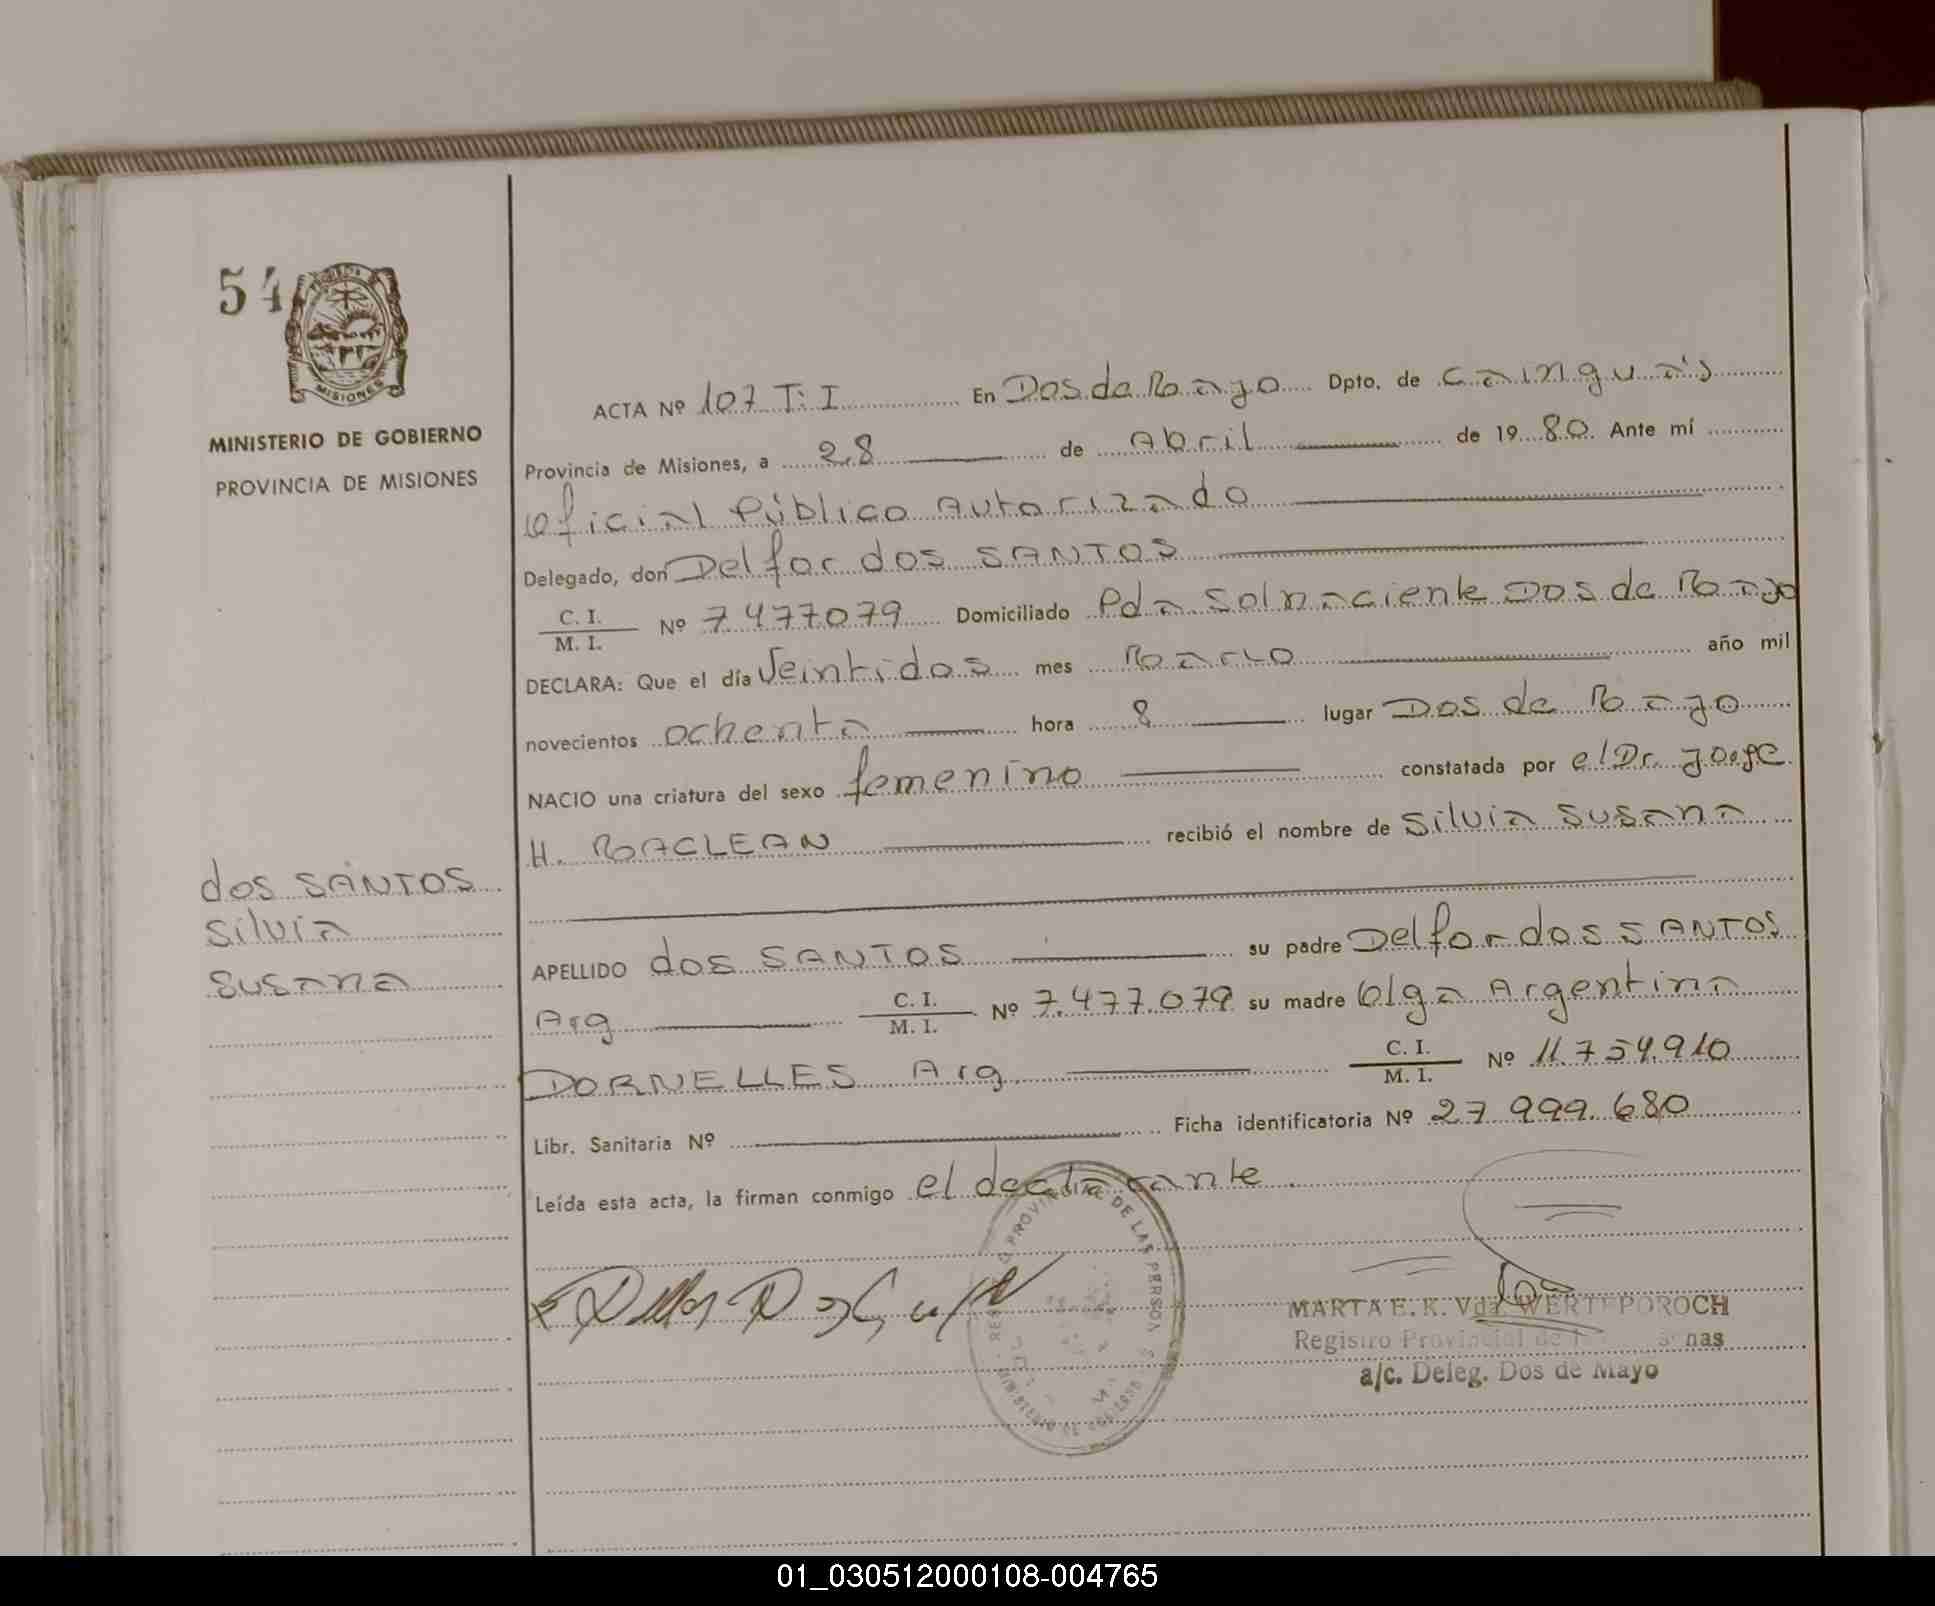 54
MISIONES
MINISTERIO DE GOBIERNO
PROVINCIA DE MISIONES
dos SANTOS
Silvia
Susana
ACTA Nº 107 T: I En Dos de Mayo Dpto. de Cainguás
Provincia de Misiones, a 28 de Abril de 19 80. Ante mí
Oficial Público Autorizado
Delegado, don Delfor dos SANTOS
C. I.
M. I. Nº 7477079 Domiciliado Pda Solnaciente Dos de Mayo
DECLARA: Que el día Veintidos mes Marzo año mil
novecientos ochenta hora 8 lugar Dos de Mayo
NACIO una criatura del sexo femenino constatada por el Dr. Jorge
H. MACLEAN recibió el nombre de Silvia Susana
APELLIDO dos SANTOS su padre Delfor dos SANTOS
Arg C. I.
M. I. Nº 7.477.079 su madre Olga Argentina
DORNELLES Arg C. I.
M. I. Nº 11.754.910
Libr. Sanitaria Nº Ficha identificatoria Nº 27 999.680
Leída esta acta, la firman conmigo el declarante.
MARTA E. K. Vda. WERTEPOROCH
Registro Provincial de
a/c. Deleg. Dos de Mayo
01_030512000108-004765